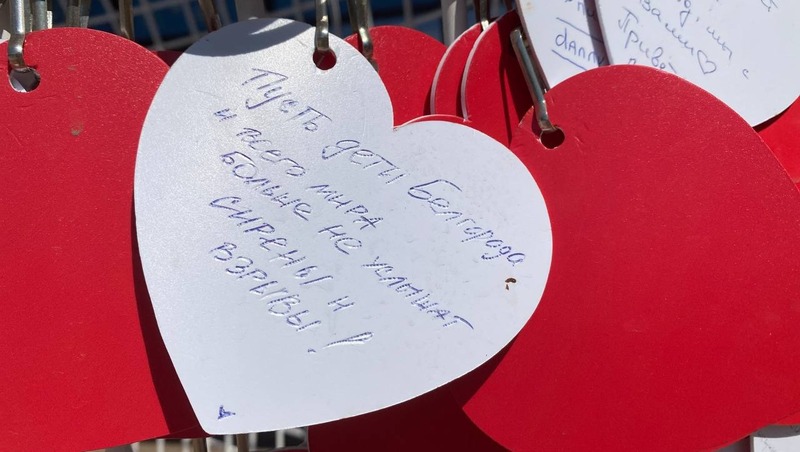 Пусть дети Белгорода
и всего мира
больше не услышат
сирены и
взрывы!
Привет